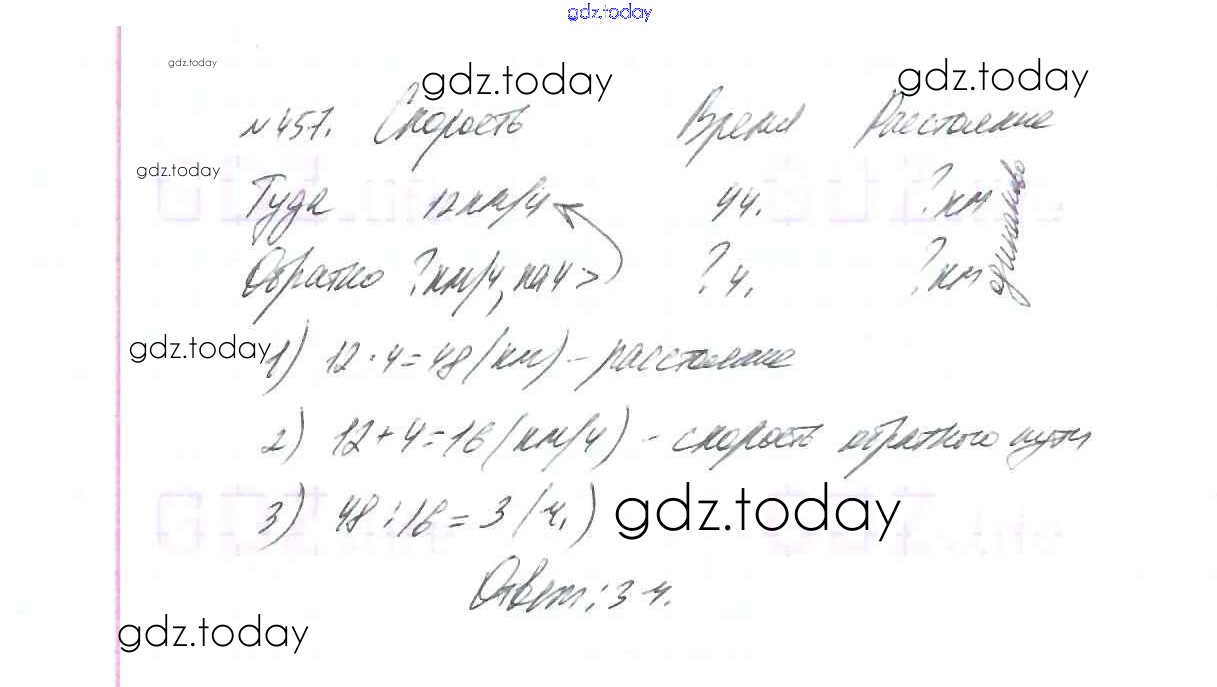 gdz.today
gdz.today
gdz.today gdz.today
№457. Скорость Время Расстояние
gdz.today
Туда 12км/ч 4ч. ?км
Обратно ?км/ч, на 4 > ? ч. ?км
одинаково
gdz.today
1) 12 · 4 = 48 (км) – расстояние
2) 12 + 4 = 16 (км/ч) – скорость обратного пути
3) 48 : 16 = 3 (ч.)
gdz.today
Ответ: 3 ч.
gdz.today